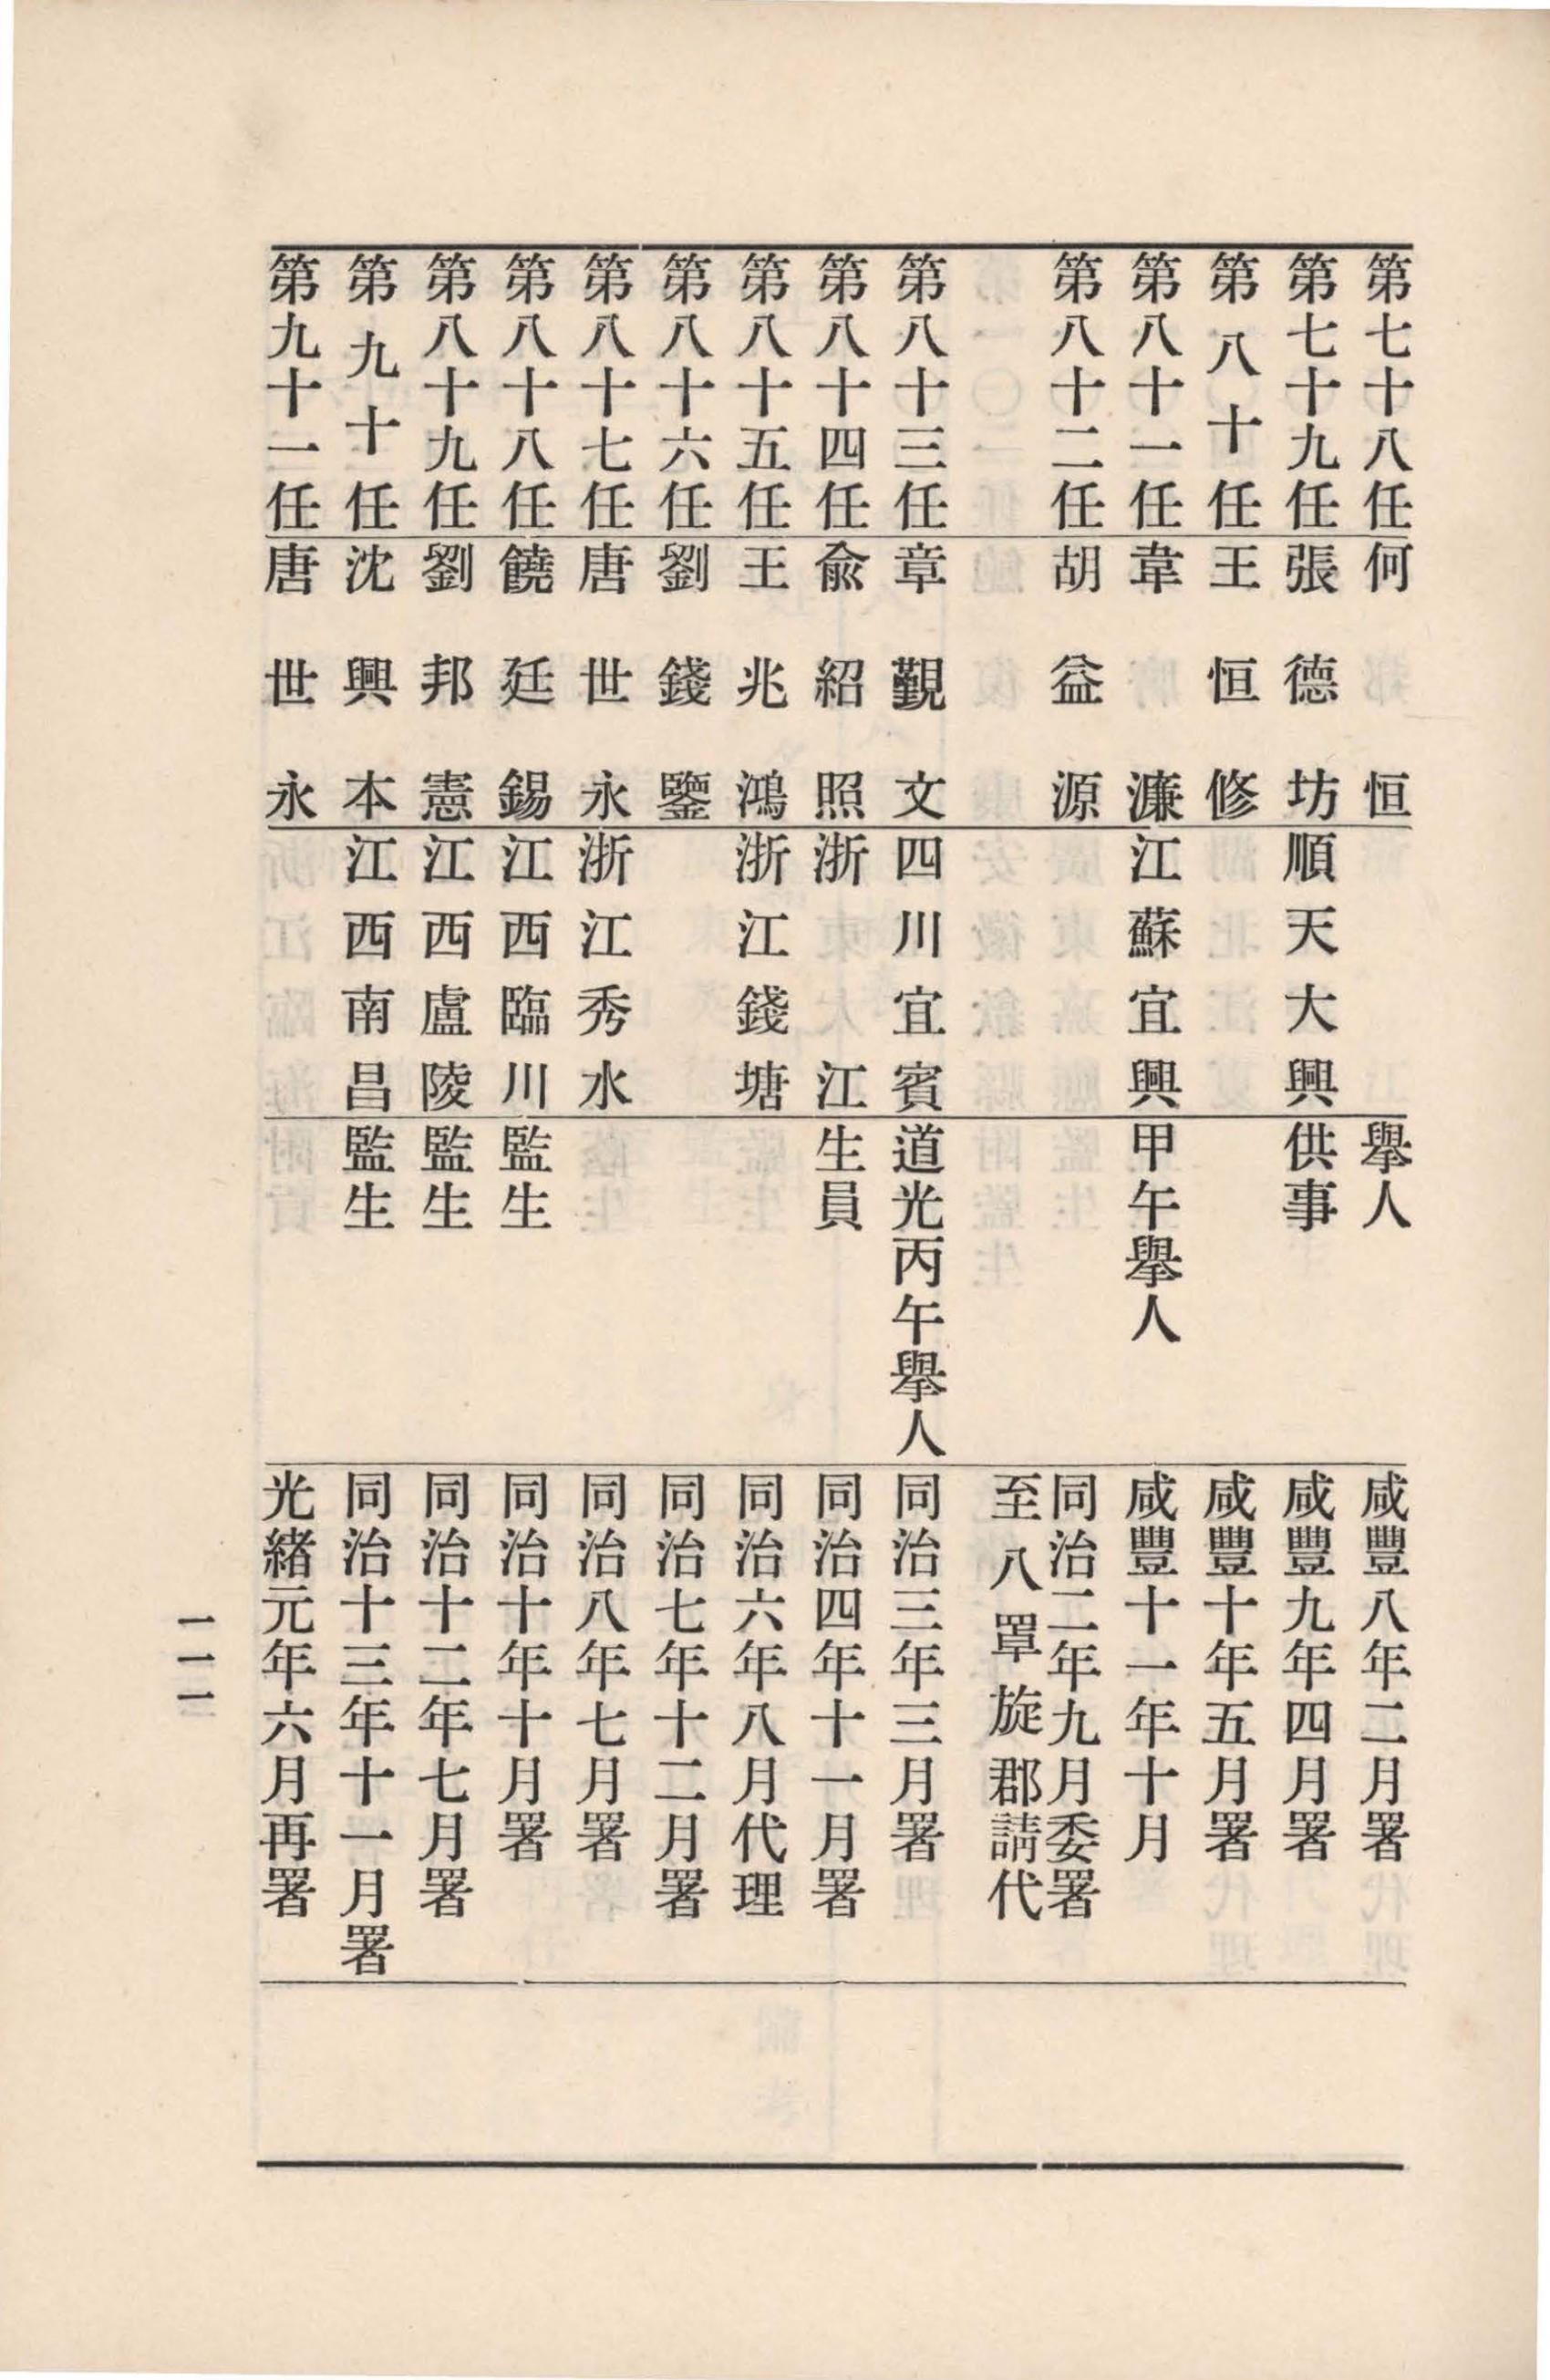 第七十八任何恒舉人咸豐八年二月署
第七十九任張德坊順天大興供事咸豐九年四月署
第八十任王恒修咸豐十年五月署
第八十一任韋濂江蘇宜興甲午舉人咸豐十一年十月
第八十二任胡益源同治二年九月委署
至八罩旋郡請代
第八十三任章覲文四川宜賓道光丙午舉人同治三年三月署
第八十四任兪紹照浙江生員同治四年十一月署
第八十五任王兆鴻浙江錢塘同治六年八月代理
第八十六任劉錢鑒同治七年十二月署
第八十七任唐世永浙江秀水同治八年七月署
第八十八任饒廷錫江西臨川監生同治十年十月署
第八十九任劉邦憲江西盧陵監生同治十二年七月署
第九十任沈興本江西南昌監生同治十三年十一月署
第九十一任唐世永光緒元年六月再署
一一一